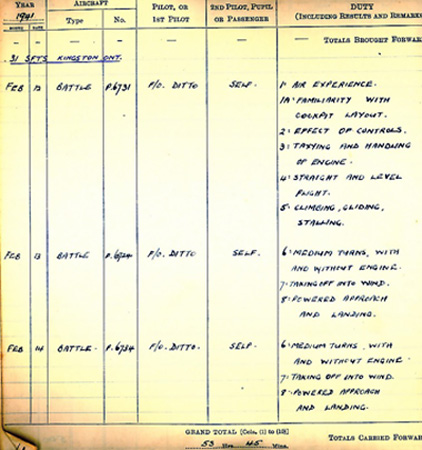 YEAR
1941
AIRCRAFT
PILOT, OR
1ST PILOT
2ND PILOT, PUPIL
OR PASSENGER
DUTY
(INCLUDING RESULTS AND REMARKS
MONTH DATE Type No.
— — — — — — TOTALS BROUGHT FORWAR
31 SFTS KINGSTON ONT.
FEB 12 BATTLE P.6731 F/O. DITTO SELF. 1. AIR EXPERIENCE.
1A. FAMILIARITY WITH
COCKPIT LAYOUT.
2. EFFECT OF CONTROLS.
3. TAXYING AND HANDLING
OF ENGINE.
4. STRAIGHT AND LEVEL
FLIGHT.
5. CLIMBING, GLIDING,
STALLING.
FEB 13 BATTLE P.6724 F/O. DITTO SELF. 6. MEDIUM TURNS, WITH
AND WITHOUT ENGINE.
7. TAKING OFF INTO WIND.
8. POWERED APPROACH
AND LANDING.
FEB 14 BATTLE. P.6734 F/O. DITTO. SELF. 6. MEDIUM TURNS, WITH
AND WITHOUT ENGINE
7. TAKING OFF INTO WIND.
8. POWERED APPROACH
AND LANDING.
GRAND TOTAL [Cols. (1) to (10)]
53 Hrs. 45 Mins.
TOTALS CARRIED FORWAR